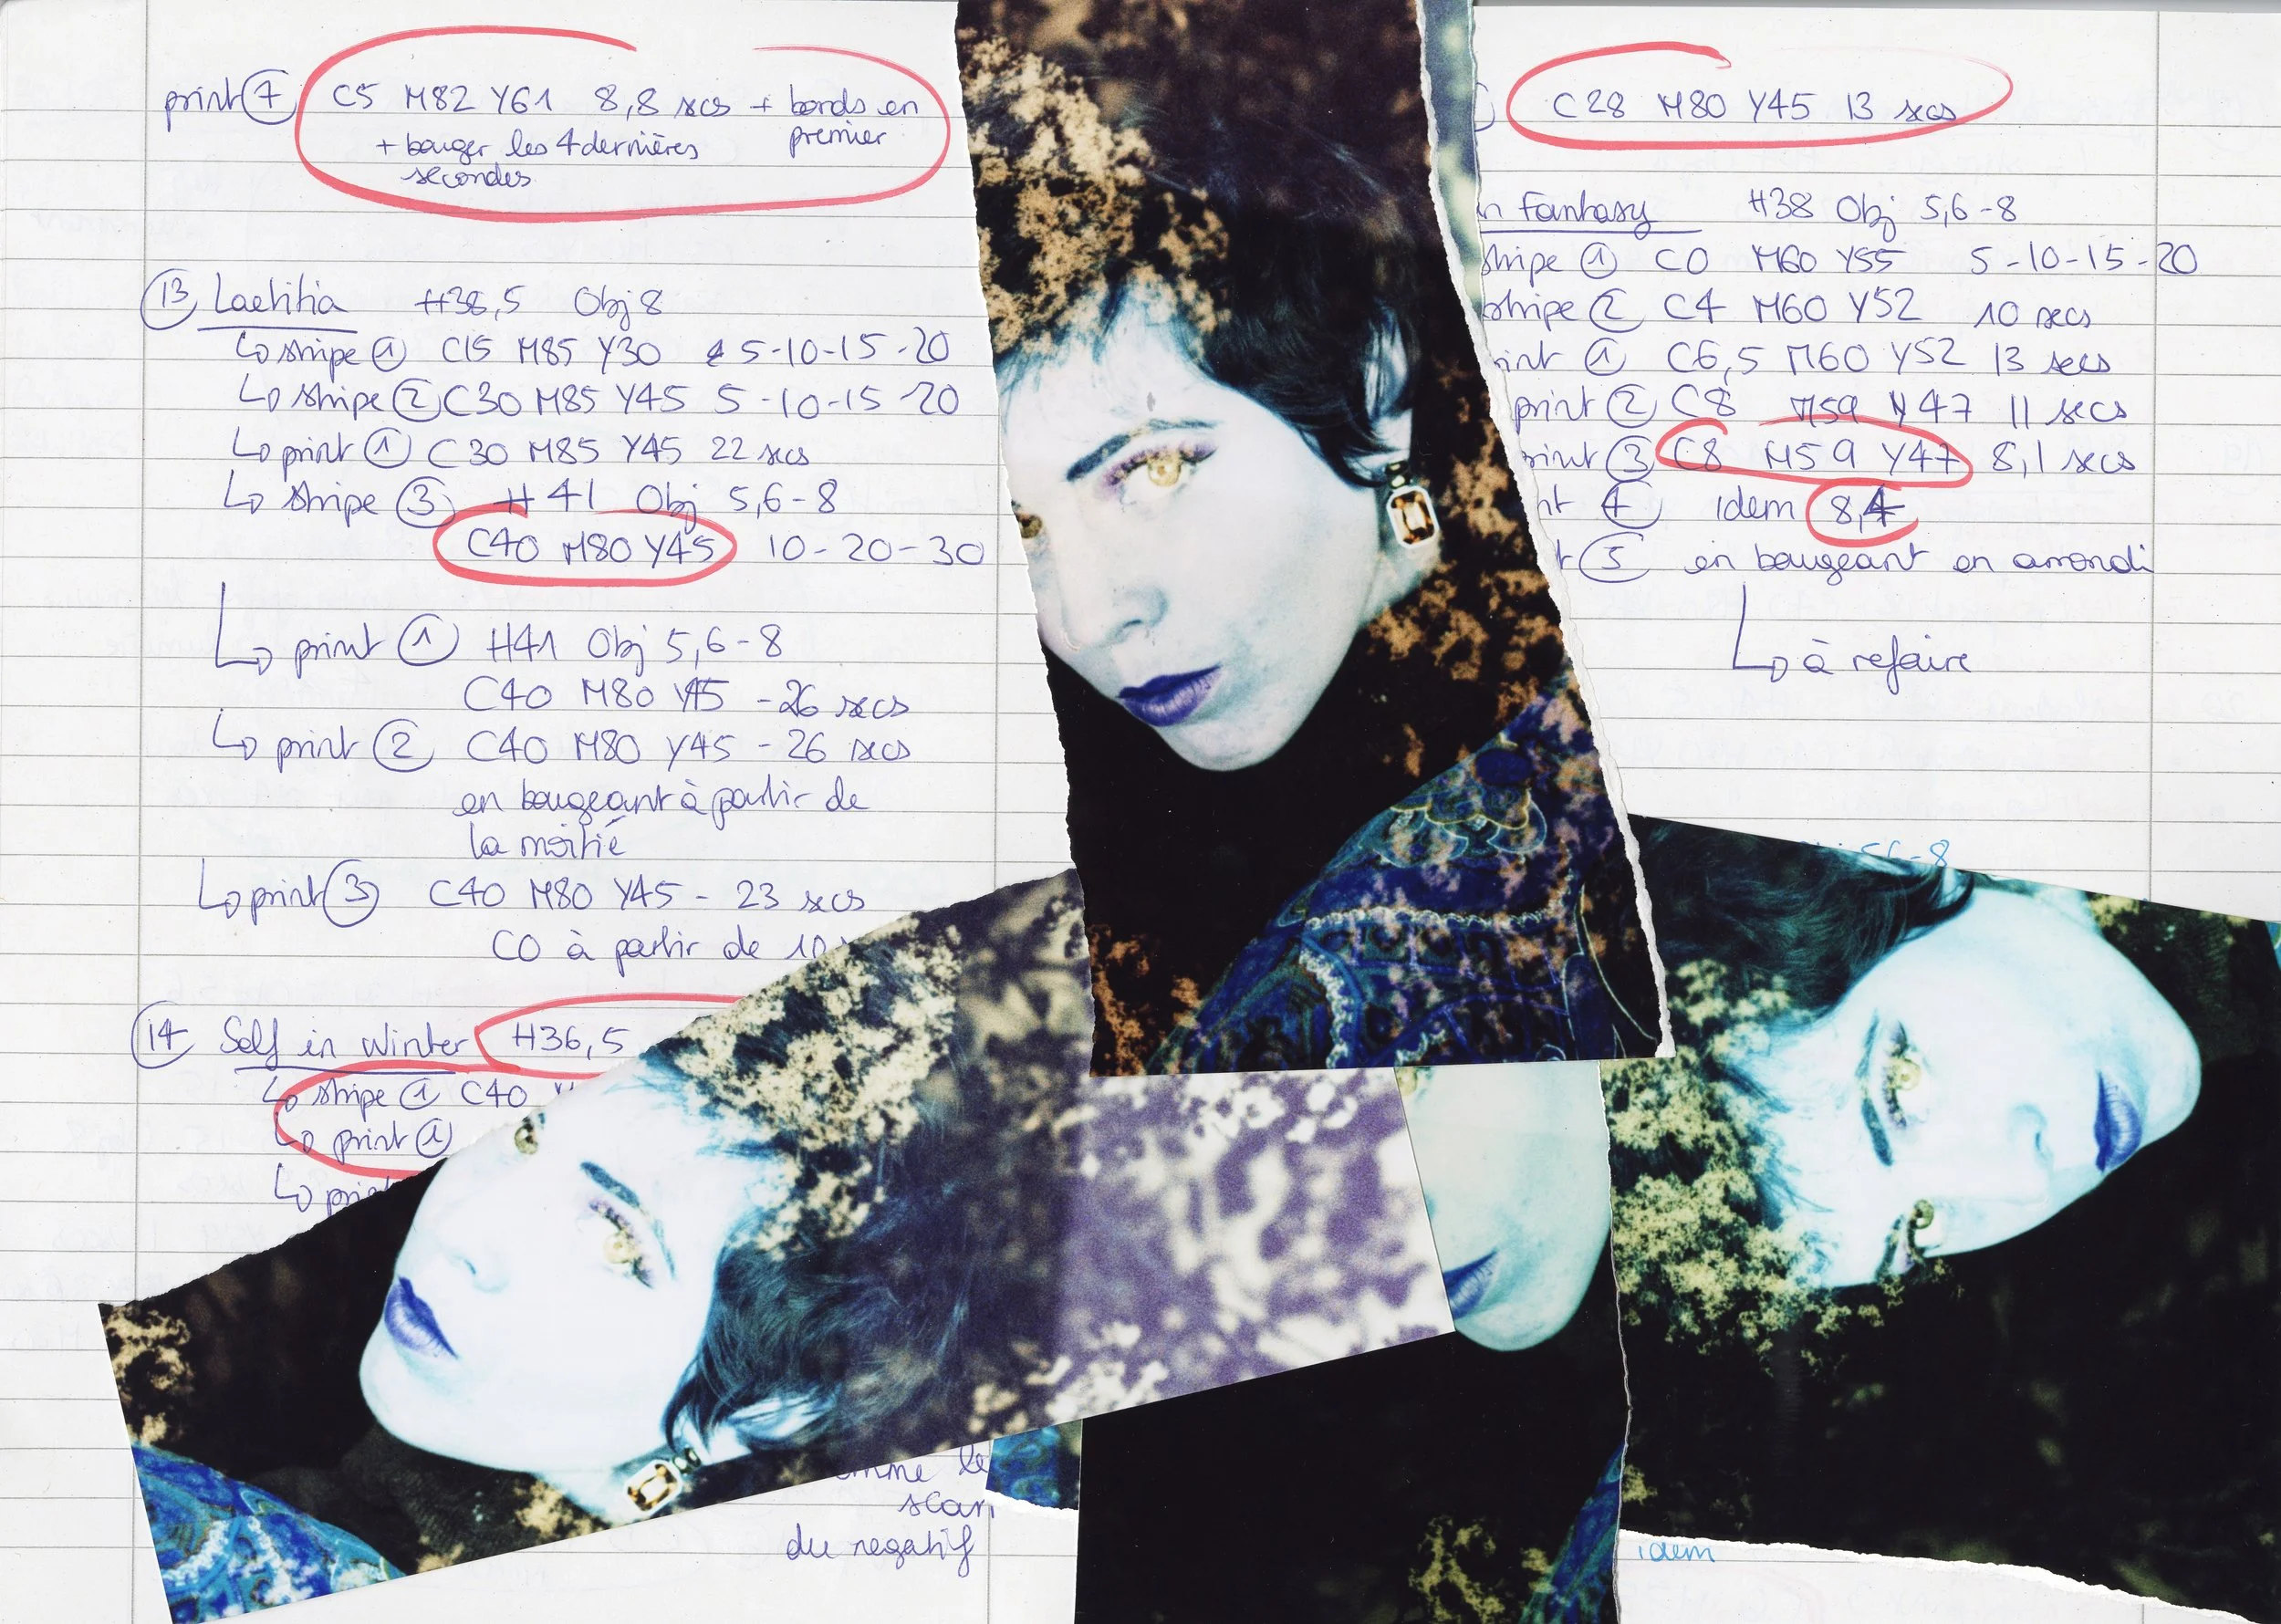 print ⑦ C5 M82 Y61 8,8 secs + bords en premier
+ bouger les 4 dernières
secondes
⑬ Laetitia H38,5 Obj 8
↳ stripe ① C15 M85 Y30 5-10-15-20
↳ stripe ② C30 M85 Y45 5-10-15-20
↳ print ① C30 M85 Y45 22 secs
↳ stripe ③ H41 Obj 5,6-8
C40 M80 Y45 10-20-30
↳ print ① H41 Obj 5,6-8
C40 M80 Y45 -26 secs
↳ print ② C40 M80 Y45 - 26 secs
en bougeant à partir de
la moitié
↳ print ③ C40 M80 Y45 - 23 secs
C0 à partir de 10
⑭ Self in Winter H36,5
↳ stripe ① C40
↳ print ①
↳ prin
le
scan
du negatif
C28 M80 Y45 13 secs
n Fantasy H38 Obj 5,6-8
stripe ① C0 M60 Y55 5-10-15-20
stripe ② C4 M60 Y52 10 secs
int ① C6,5 M60 Y52 13 secs
print ② C8 M59 Y47 11 secs
print ③ C8 M59 Y47 8,1 secs
nt ④ idem 8,4
t ⑤ en bougeant en arrondi
↳ à refaire
5,6-8
idem